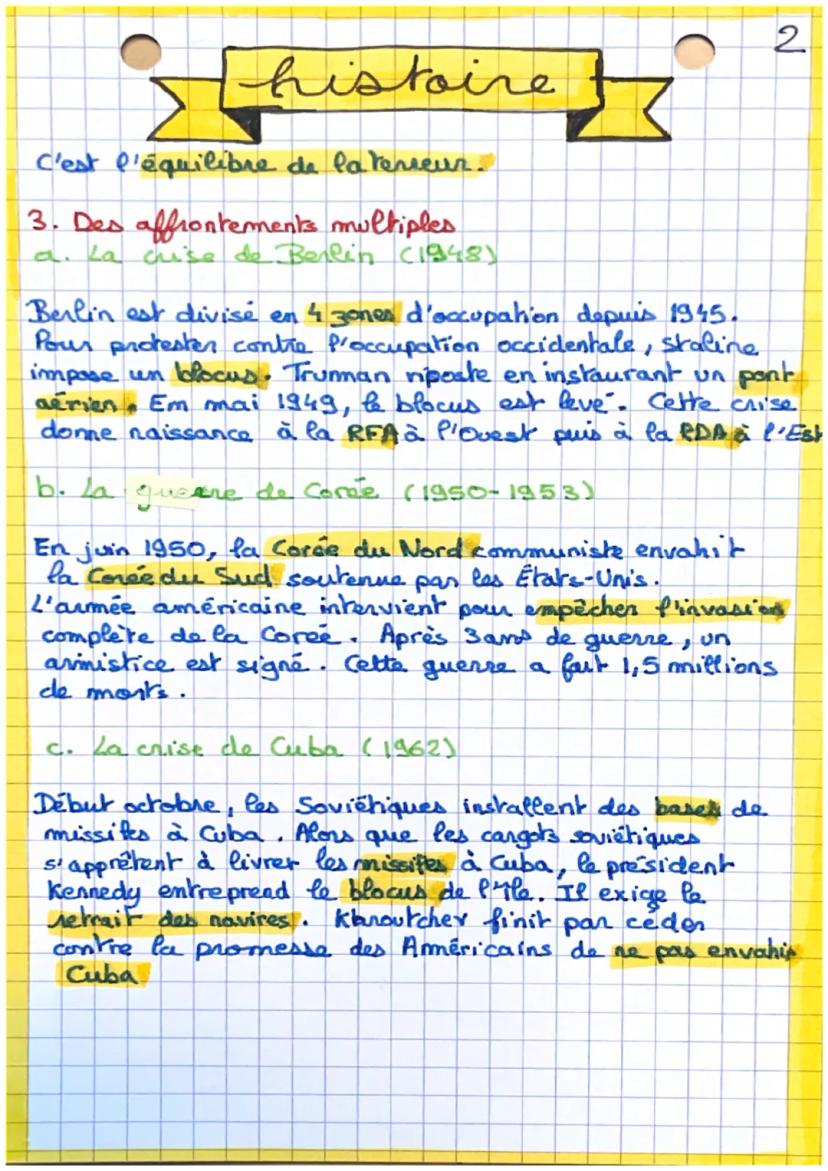 2
histoire
C'est l'équilibre de la terreur.
3. Des affrontements multiples
a. La crise de Berlin (1948)
Berlin est divisé en 4 zones d'occupation depuis 1945.
Pour protester contre l'occupation occidentale, Staline
impose un blocus. Trumman riposte en instaurant un pont
aérien. Em mai 1949, le blocus est levé. Cette crise
donne naissance à la RFA à l'Ouest puis à la RDA à l'Est
b. La guerre de Corée (1950-1953)
En juin 1950, la Corée du Nord communiste envahit
la Corée du Sud soutenue par les États-Unis.
L'armée américaine intervient pour empêcher l'invasion
complète de la Corée. Après 3 ans de guerre, un
arimistice est signé. Cette guerre a fait 1,5 millions
de morts.
c. La crise de Cuba (1962)
Début octobre, les Soviétiques installent des bases de
missiles à Cuba. Alors que les cargots soviétiques
s'apprêtent à livrer les missiles à Cuba, le président
Kennedy entreprend le blocus de l'île. Il exige le
retrait des navires. Khroutchev finit par céder
contre la promesse des Américains de ne pas envahir
Cuba